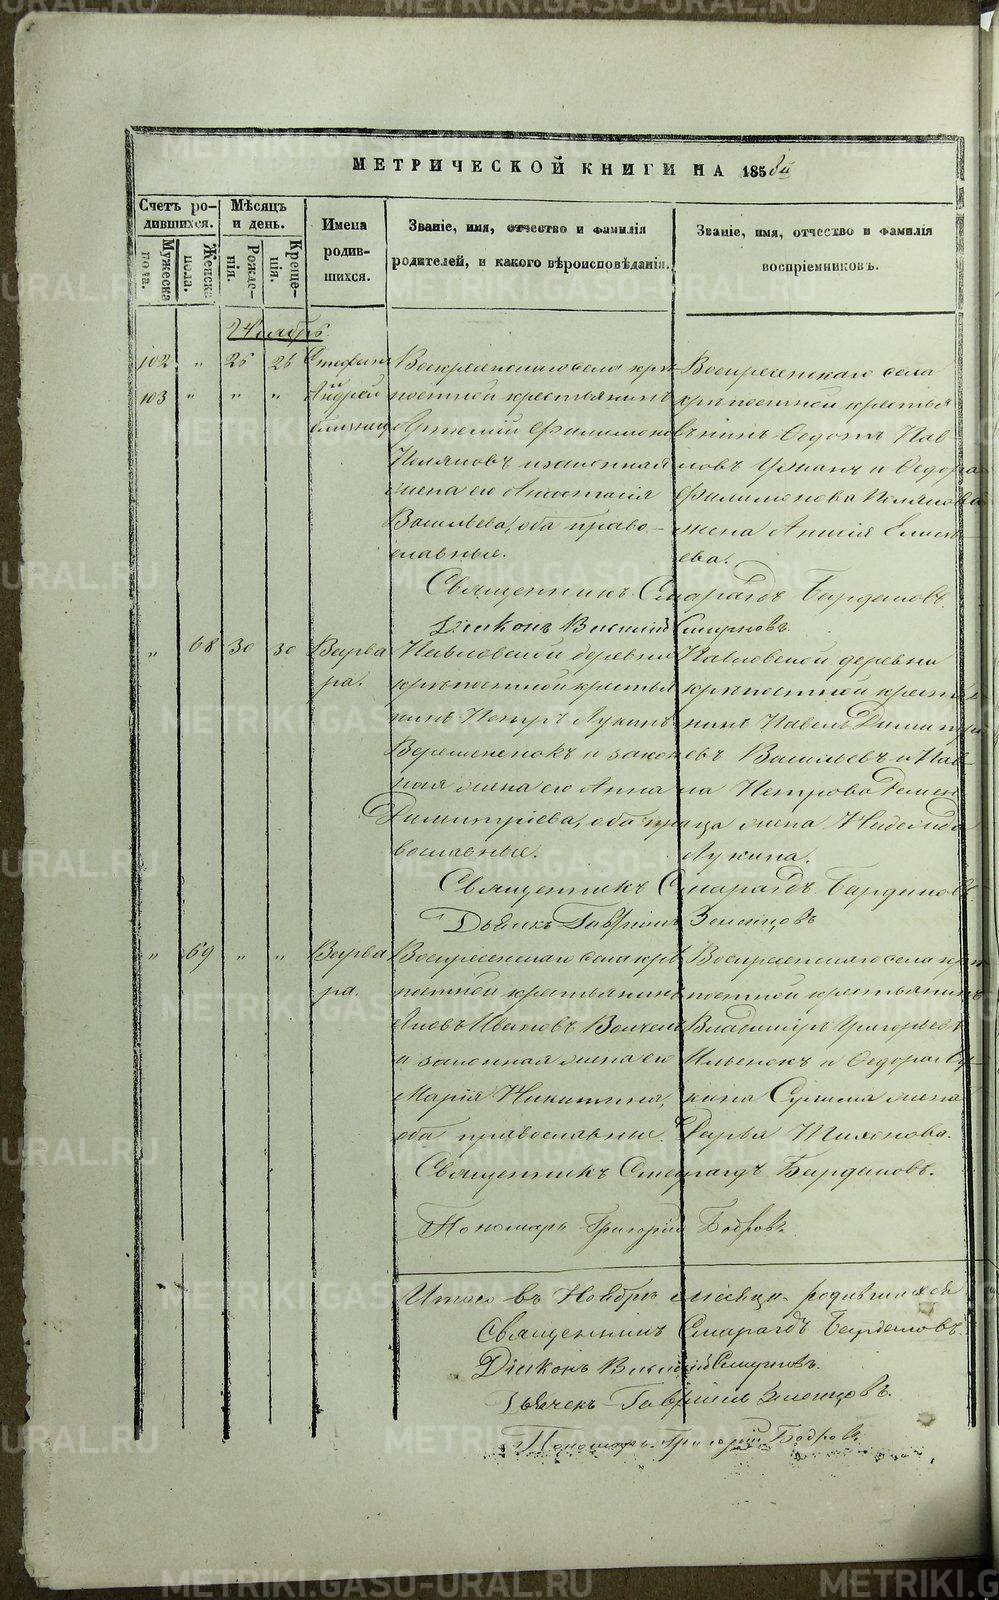 МЕТРИЧЕСКОЙ КНИГИ НА 1858й
Счетъ родившихся.
Мужеска пола.
Женска пола.
Мѣсяцъ и день.
Рожденія.
Крещенія.
Имена родившихся.
Званіе, имя, отчество и фамилія родителей, и какого вѣроисповѣданія.
Званіе, имя, отчество и фамилія воспріемниковъ.
Ноябрь
102 " 26 26 Стефанъ
103 " " " и Андрей
близнец
Воскресенскаго села крѣ-
постной крестьянинъ
Артемій Филимоновъ
и законная
жена его Анастасія
Васильева, оба право-
славные.
Воскресенскаго села
крѣпостной крестья-
нинъ Федотъ Пав-
ловъ и Федора
Филимонова
жена Елисѣ-
ева.
Священникъ Смарагдъ Бардановъ.
Діаконъ Василій Смирновъ.
" 68 30 30 Варва
ра.
Павловской деревни
крѣпостной крестья
нинъ Петръ Лукинъ
Веремеенокъ и закон
ная жена его Анна
Димитріева, оба пра
вославные.
Павловской деревни
крѣпостной крестья
нинъ Павелъ Димитрі
евъ Васильевъ и Пав
ла Петрова
жена
Лукина.
Священникъ Смарагдъ Бардановъ.
Дьячекъ ГавріилъЗеменцовъ
" 69 " " Варва
ра.
Воскресенскаго села крѣ
постной крестьянинъ
Яковъ Ивановъ
и законная жена его
Марія Никитина,
оба православные.
Воскресенскаго села крѣ
постной крестьянинъ
Владиміръ Григорьевъ
Ильенокъ и Федора Лу-
кина жена
Дарья Тихонова.
Священникъ Смарагдъ Бардановъ.
Пономарь Григорій Бобровъ.
Итого въ Ноябрѣ мѣсяцѣ родившихся
Священникъ Смарагдъ Бардановъ.
Діаконъ Василій Смирновъ.
Дьячекъ Гавріилъ Земенцовъ.
Пономарь Григорій Бобровъ.
METRIKI.GASO-URAL.RU